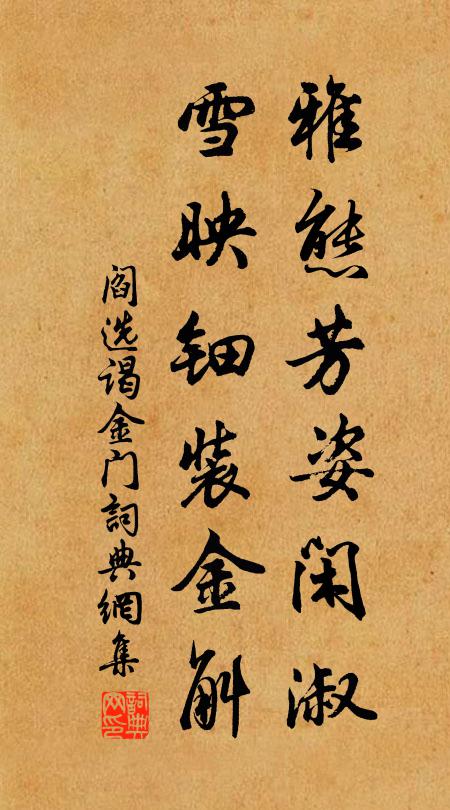 雅態芳姿闲淑
雪映钿裝金斛
阎选谒金门詞典網集
詞典
网印